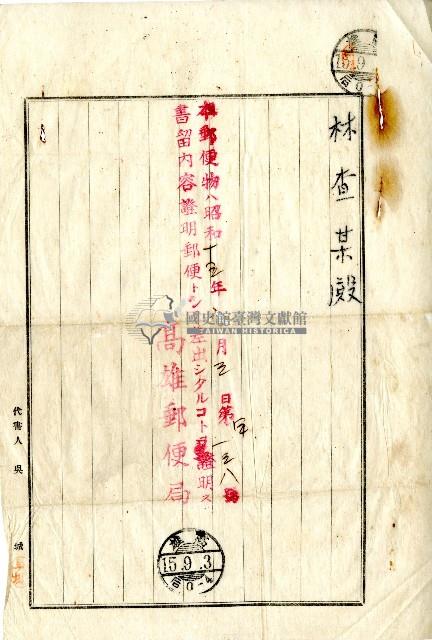 林查某殿
本郵便物ハ昭和十五年 月三日第 一三八號
書留內容證明郵便トシ 差出シタルコトヲ證明ス
高雄郵便局
代書人 吳 城
高雄
15.9.3
后0-4
15.9
國史館臺灣文獻館
TAIWAN HISTORICA